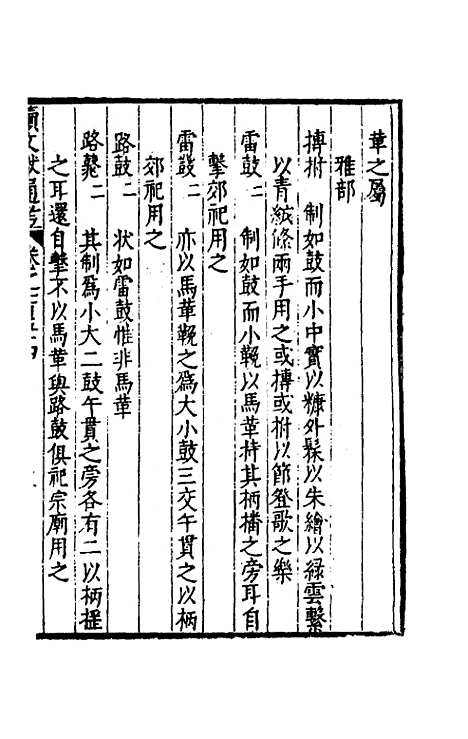 革之屬
雅部
搏拊　制如鼓而小中實以糠外髹以朱繪以綠雲繫
以青絨絛兩手用之或搏或拊以節登歌之樂
雷鼓二　制如鼓而小鞔以馬革持其柄播之旁耳自
擊郊祀用之
雷鼗二　亦以馬革鞔之為大小鼓三交午貫之以柄
郊祀用之
路鼓二　狀如雷鼓惟非馬革
路鼗二　其制為小大二鼓午貫之旁各有二以柄搖
之耳還自擊不以馬革與路鼓俱祀宗廟用之
續文獻通考